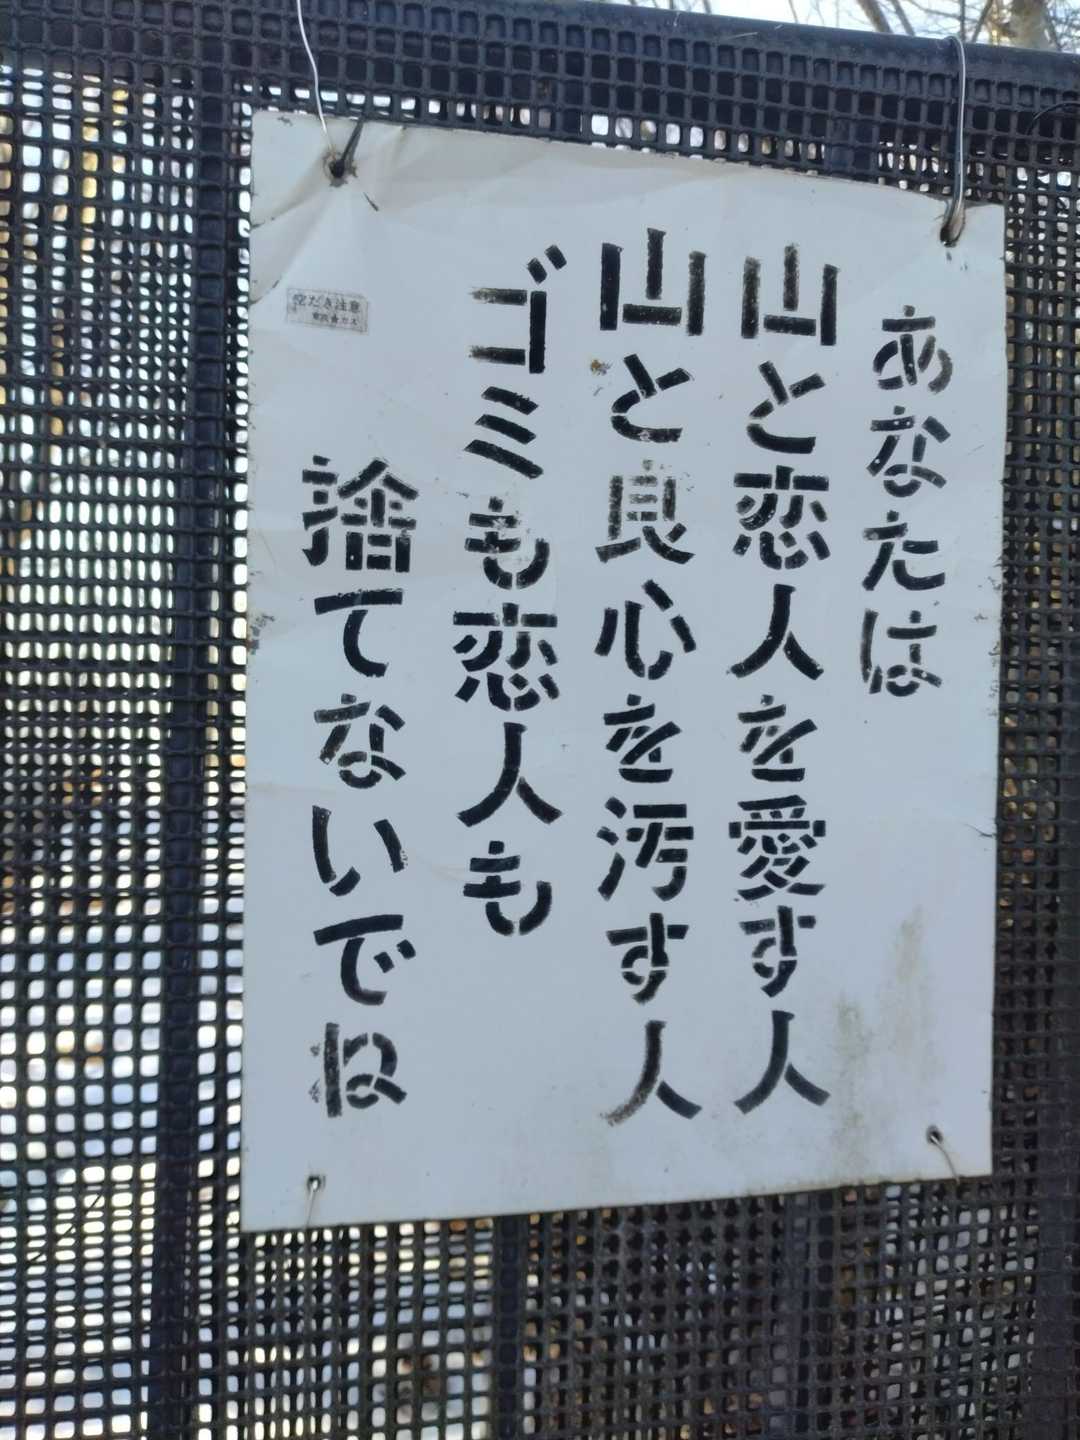 あなたは
山と恋人を愛す人
山と良心を汚す人
ゴミも恋人も
捨てないでね
空だき注意
東京ガス